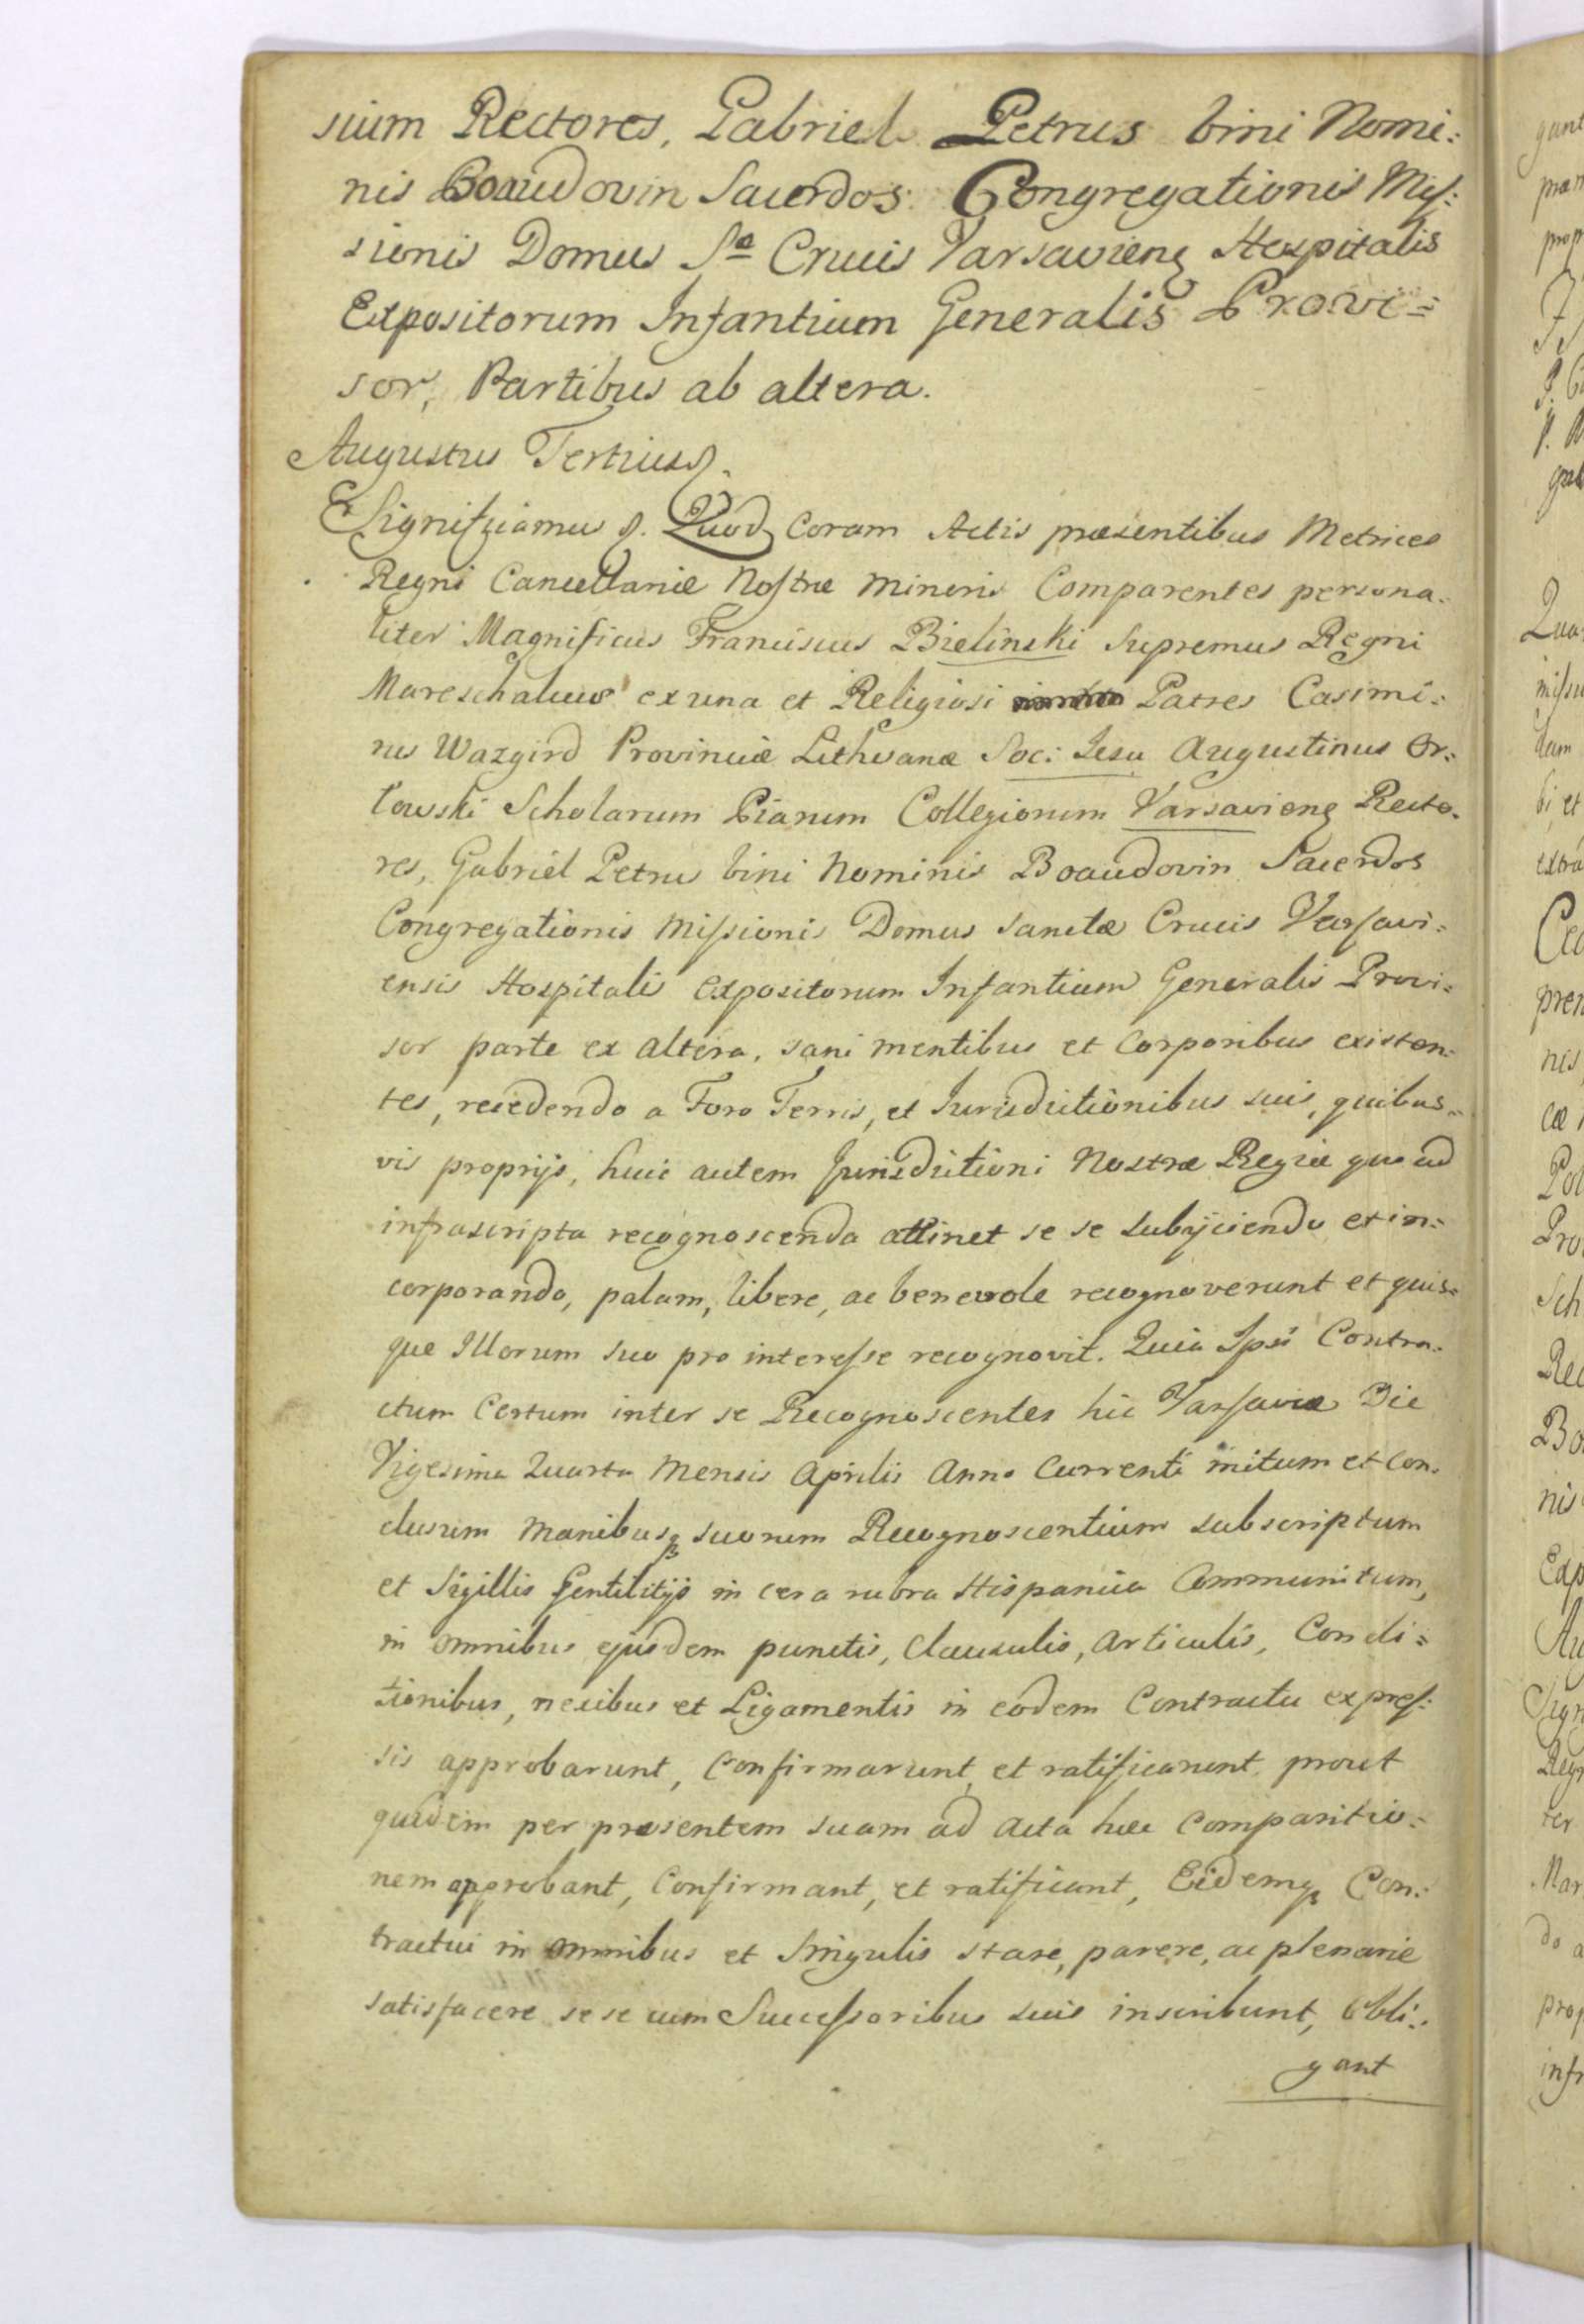 sium Rectores, Gabriel Petrus bini Nomi:
nis Boaudovin Sacerdos Congregationis Mis:
sionis Domus Sæ Crucis Varsavieng Hospitalis
Expositorum Infantium Generalis Provi=
sor, Partibus ab altera.
Augustus Tertius
Significamus Quod Coram Actis præsentibus Metrices
Regni Cancellariæ Nostræ Minoris Comparentes persona:
liter Magnificus Franciscus Bielinski Supremus Regni
Mareschalcus ex una et Religiosi Patres Casimi:
rus Wazgird Provinciæ Lithvanæ Soc: Jesu Augustinus Or:
lowski Scholarum Piarum Collegiorum Varsavieng Recto:
res, Gabriel Petrus bini Nominis Boaudovin Sacerdos
Congregationis Missionis Domus Sanctæ Crucis Varsavi:
ensis Hospitalis Expositorum Infantium Generalis Provi:
sor parte ex altera, sani mentibus et Corporibus existen:
tes, recedendo a Foro Terris, et Jurisdictionibus suis, quibus=
vis proprijs, huic autem Jurisdictioni Nostræ Regiæ quo ad
infrascripta recognoscenda attinet se se subijciendo et in:
corporando, palam, libere, ac benevole recognoverunt et quis=
que Illorum suo pro interesse recognovit. Quia Ipsi Contra:
ctum Certum inter se Recognoscentes hic Varsaviæ Die
Vigesima Quarta Mensis Aprilis Anno Currenti initum et con:
clusum Manibusq suorum Recognoscentium subscriptum
et Sigillis Gentilitijs in cera rubra Hispanica Communitum,
in omnibus ejusdem punctis, Clausulis, Articulis, Condi=
tionibus, nexibus et Ligamentis in eodem Contractu expres:
sis approbarunt, Confirmarunt, et ratificarunt, prout
quidem per præsentem suam ad Acta hæc Comparitio:
nem approbant, Confirmant, et ratificant, Eidemq Con:
tractui in omnibus et Singulis stare, parere, ac plenarie
satisfacere se se cum Successoribus suis inscribunt, Obli:
gant